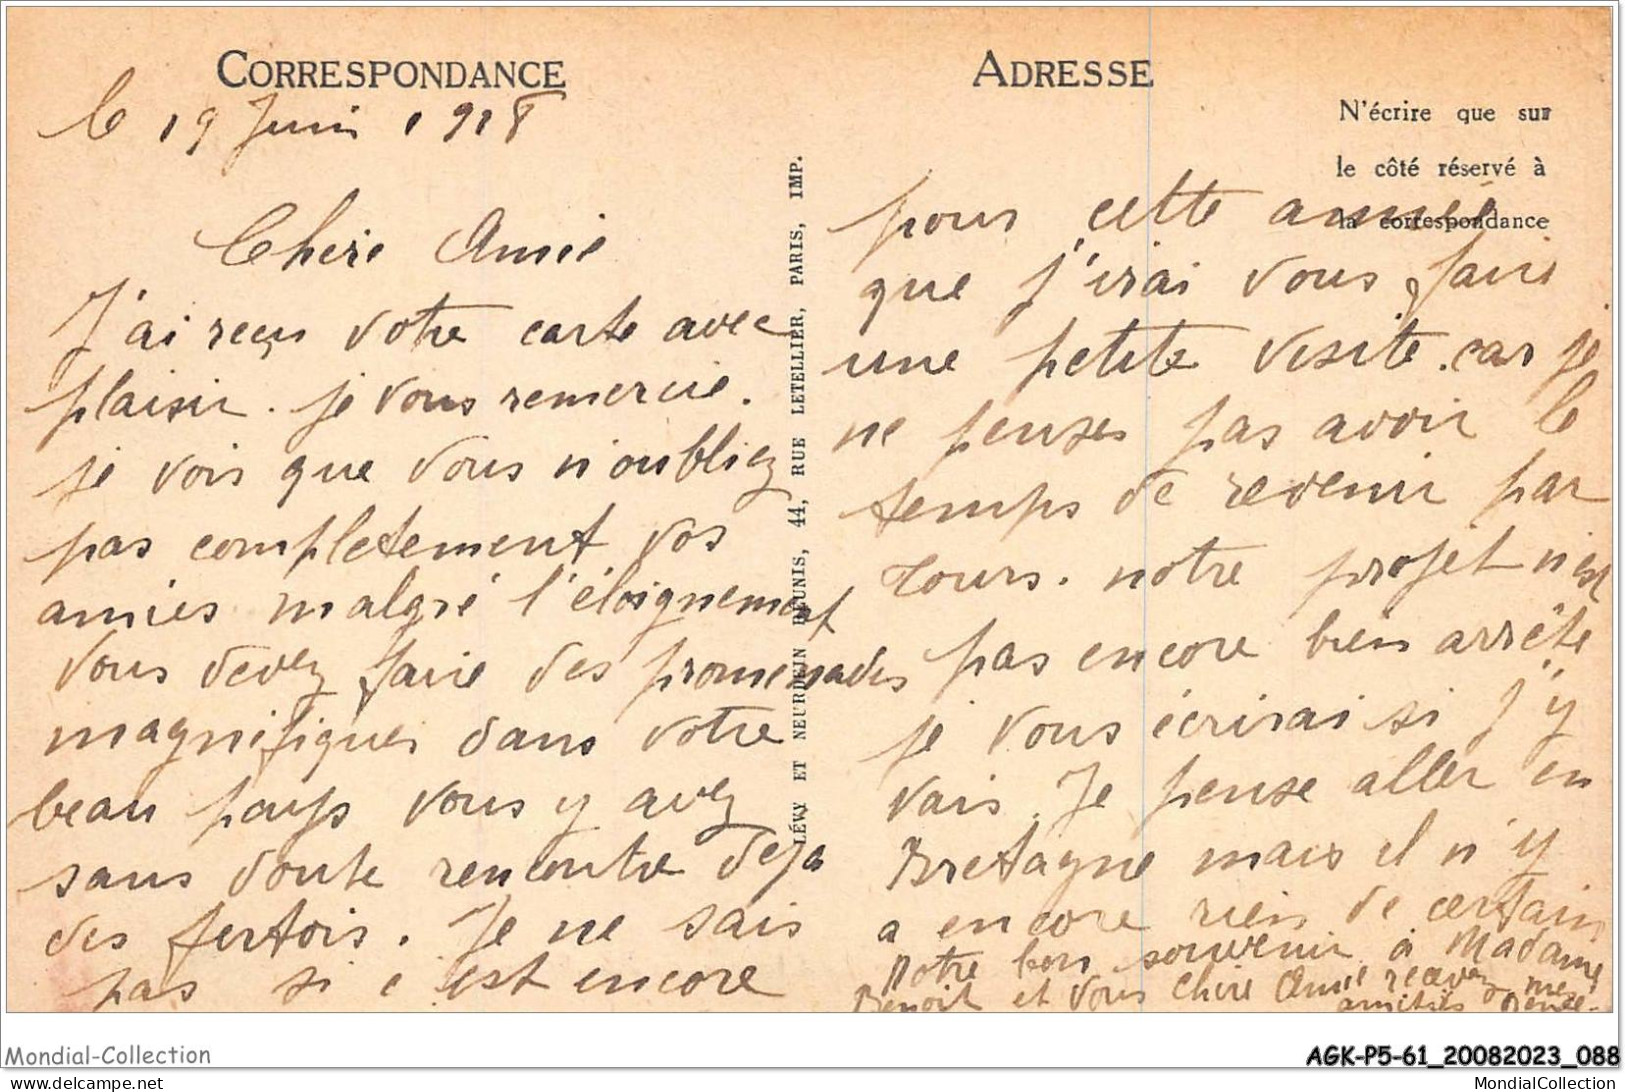 CORRESPONDANCE
le 19 Juin 1918
Chère Amie
J'ai reçu votre carte avec
plaisir. je vous remercie.
je vois que vous n'oubliez
pas completement vos
amies malgré l'éloignement
Vous devez faire des promenades
magnifiques dans votre
beau pays vous y avez
sans doute rencontré deja
des fertois. Je ne sais
pas si c'est encore
LÉVY ET NEURDEIN RÉUNIS, 44, RUE LETELLIER, PARIS, IMP.
ADRESSE
N'écrire que sur
le côté réservé à
la correspondance
pour cette année
que j'irai vous faire
une petite visite. car je
ne penses pas avoir le
temps de revenir par
Tours. notre projet n'est
pas encore bien arrêté
je vous écrirai si j'y
vais. Je pense aller en
Bretagne mais il n'y
a encore rien de certain
Notre bon souvenir à Madame
Benoit et vous Chère Amie recevez mes
amitiés Renée.
Mondial-Collection
AGK-P5-61_20082023_088
delcampe.net
MondialCollection